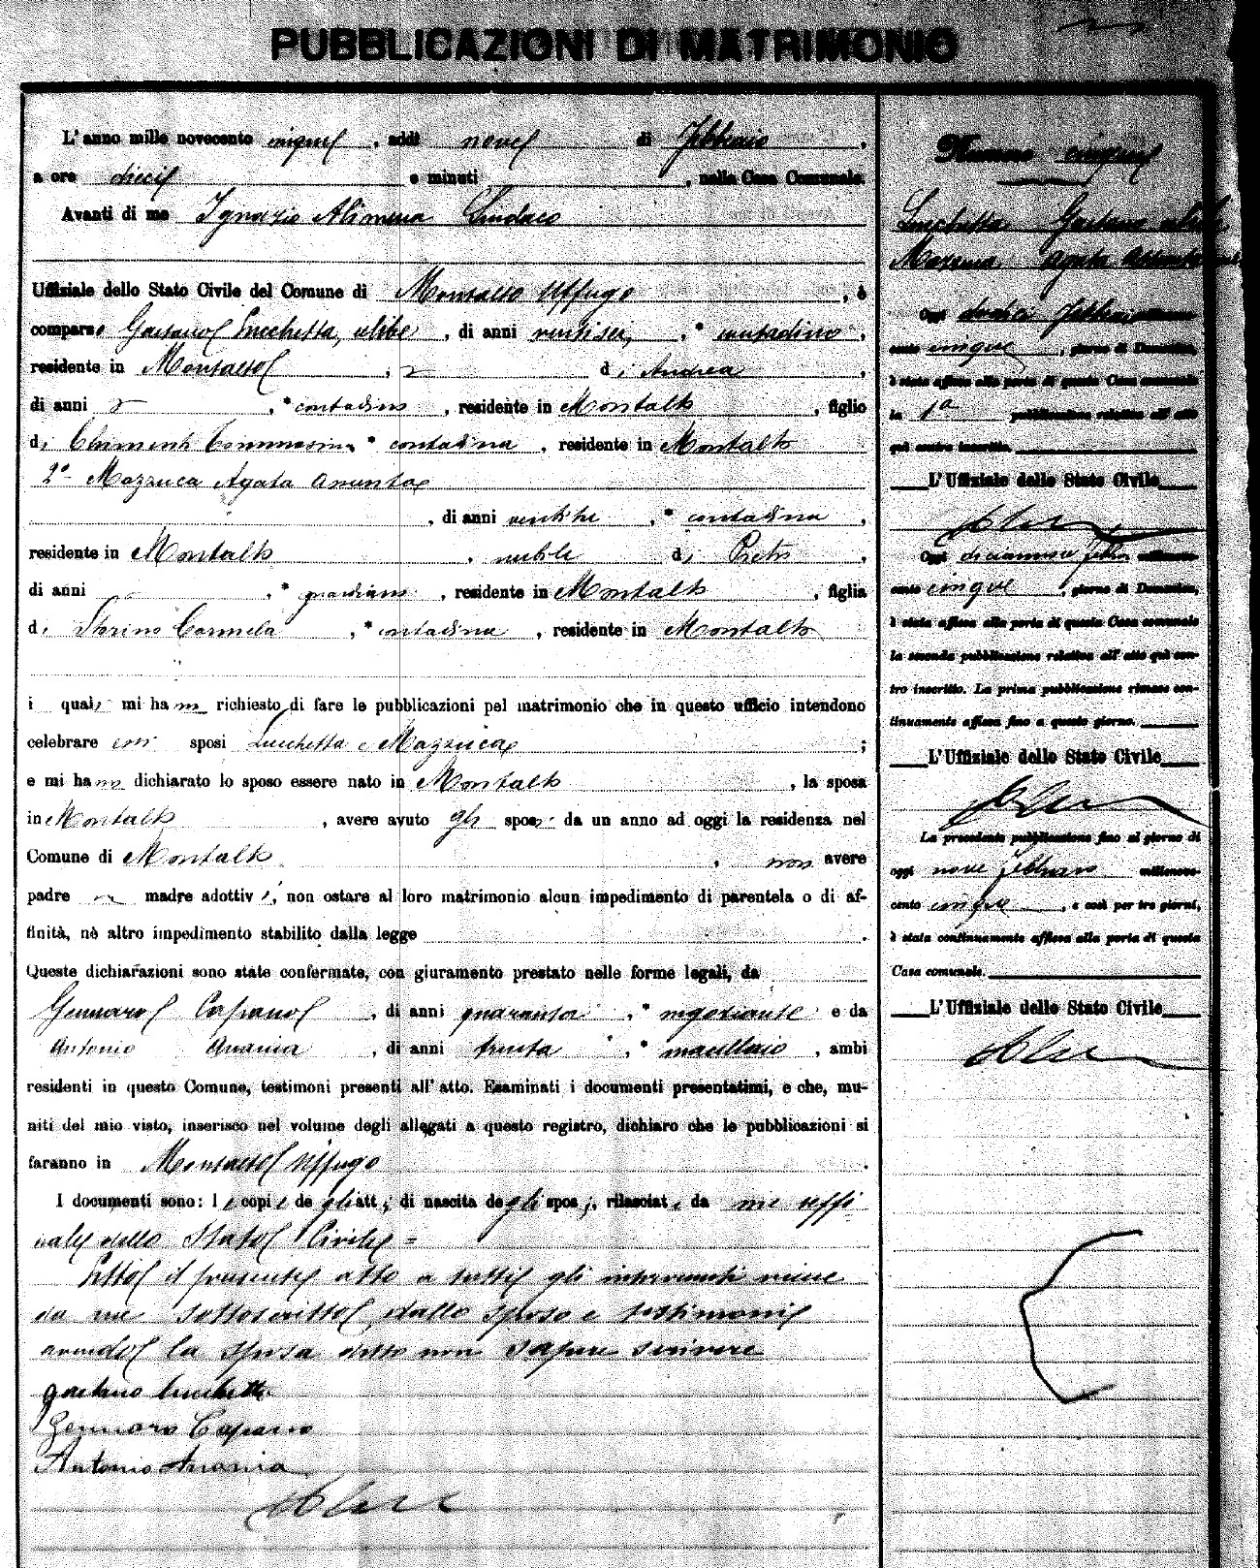 PUBBLICAZIONI DI MATRIMONIO
L'anno mille novecento cinque, addì nove di Febbraio,
a ore dieci e minuti , nella Casa Comunale.
Avanti di me Ignazio Alimena Sindaco
Uffiziale dello Stato Civile del Comune di Montalto Uffugo, è
comparso Gaetano Lucchetta, celibe, di anni ventisei, contadino,
residente in Montalto, di Andrea,
di anni , contadino, residente in Montalto, figlio
di Chimenti Tommasina, contadina, residente in Montalto
2° Mazzuca Agata Anunta
, di anni ventitre, contadina,
residente in Montalto, nubile di Pietro,
di anni , guardiano, residente in Montalto, figlia
di Storino Carmela, contadina, residente in Montalto
i quali mi hanno richiesto di fare le pubblicazioni pel matrimonio che in questo ufficio intendono
celebrare essi sposi Lucchetta e Mazzuca;
e mi hanno dichiarato lo sposo essere nato in Montalto, la sposa
in Montalto, avere avuto gli sposi da un anno ad oggi la residenza nel
Comune di Montalto, non avere
padre o madre adottivi, non ostare al loro matrimonio alcun impedimento di parentela o di af-
finità, nè altro impedimento stabilito dalla legge.
Queste dichiarazioni sono state confermate, con giuramento prestato nelle forme legali, da
Gennaro Capano, di anni quaranta, negoziante e da
Antonio Anania, di anni trenta, macellaio, ambi
residenti in questo Comune, testimoni presenti all'atto. Esaminati i documenti presentatimi, e che, mu-
niti del mio visto, inserisco nel volume degli allegati a questo registro, dichiaro che le pubblicazioni si
faranno in Montalto Uffugo.
I documenti sono: le copie degli atti di nascita degli sposi, rilasciate da me uffi
ciale dello Stato Civile =
Letto il presente atto a tutti gli intervenuti viene
da me sottoscritto, dallo sposo e testimoni
avendo la sposa detto non sapere scrivere
Gaetano Lucchetta
Gennaro Capano
Antonio Anania
Numero cinque
Lucchetta Gaetano
Mazzuca Agata
Oggi dodici Febbraio millenove-
cento cinque, giorno di Domenica,
è stata affissa alla porta di questa Casa comunale
la 1a pubblicazione relativa all'atto
quì contro inscritto.
L'Uffiziale dello Stato Civile
Oggi diciannove Febbr. millenove-
cento cinque, giorno di Domenica,
è stata affissa alla porta di questa Casa comunale
la seconda pubblicazione relativa all'atto quì con-
tro inscritto. La prima pubblicazione rimase con-
tinuamente affissa fino a questo giorno.
L'Uffiziale dello Stato Civile
La precedente pubblicazione fino al giorno di
oggi nove Febbraio millenove-
cento cinque, e così per tre giorni,
è stata continuamente affissa alla porta di questa
Casa comunale.
L'Uffiziale dello Stato Civile